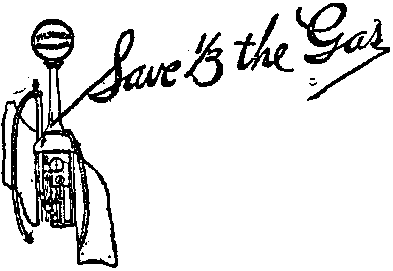 Save ⅓ the Gas